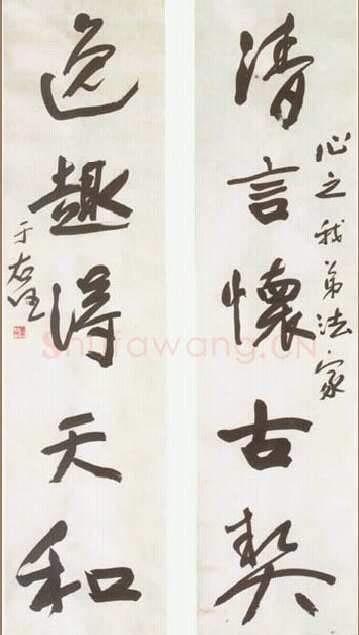 心之我弟法家
清言懷古契
逸趣得天和
于右任
Shufawang.CN